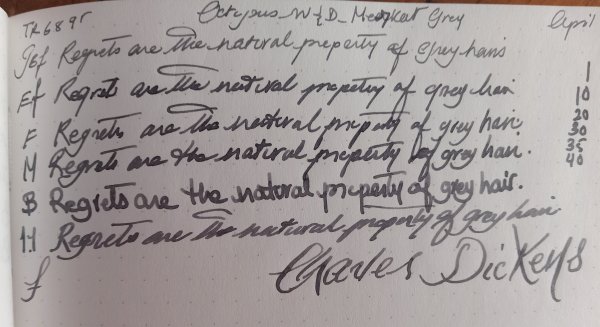 TR68gr Octopus_W&D_Meerkat Grey April
Gef Regrets are the natural property of grey hairs
Ef Regrets are the natural property of grey hair. 1
F Regrets are the natural property of grey hair. 10
M Regrets are the natural property of grey hair. 20
B Regrets are the natural property of grey hair. 30
H Regrets are the natural property of grey hair 35
f Charles Dickens 40